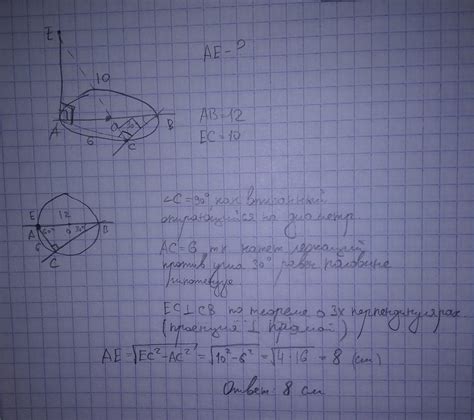 E
10
AE - ?
AB = 12
EC = 10
A
O
30°
B
6
C
∠C = 90° как вписанный
опирающийся на диаметр
E
12
A
60°
O
30°
B
6
C
AC = 6 тк катет лежащий
против угла 30° равен половине
гипотенузе
EC ⊥ CB по теореме о 3х перпендикулярах
(проекция ⊥ прямой)
AE = √EC² - AC² = √10² - 6² = √4·16 = 8 (см)
Ответ: 8 см